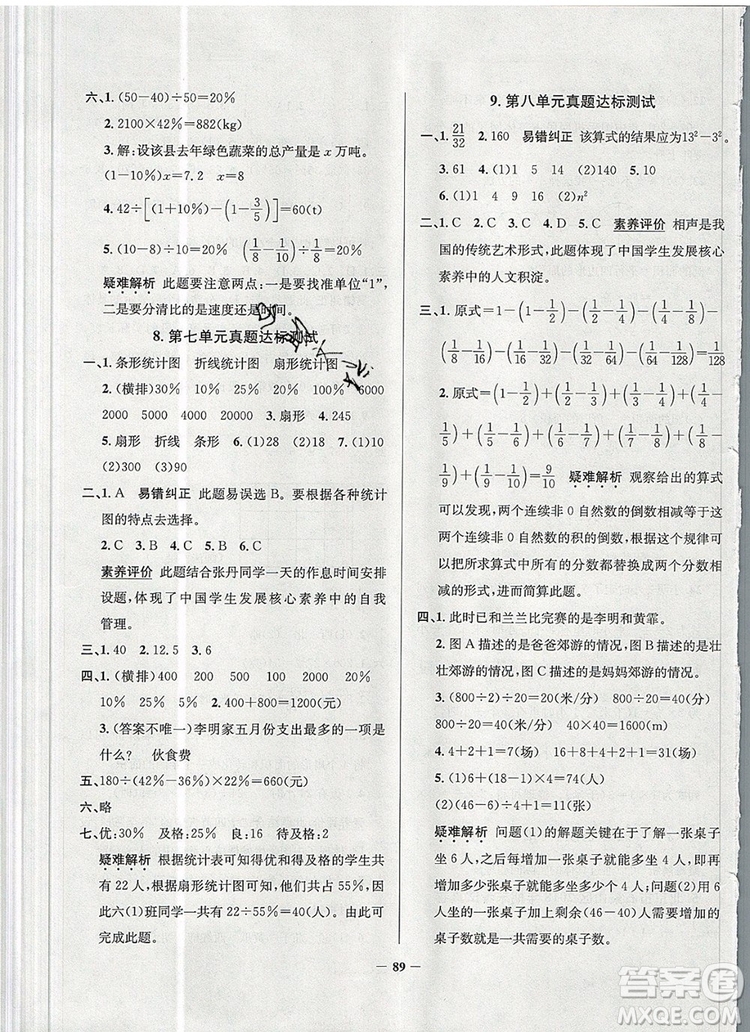 六、1. (50－40)÷50＝20%
2. 2100×42%＝882(kg)
3. 解：设该县去年绿色蔬菜的总产量是 x 万吨。
(1－10%)x＝7.2　x＝8
4. 42÷[(1＋10%)－(1－3/5)]＝60(t)
5. (10－8)÷8＝25%　(1/8－1/10)÷1/8＝20%
疑难解析　此题要注意两点：一是要找准单位“1”，
二是要分清比的是速度还是时间。
8. 第七单元真题达标测试
一、1. 条形统计图　折线统计图　扇形统计图
2. (横排)30%　10%　25%　20%　100%　6000
2000　4000　5000　20000　3. 扇形　4. 245
5. 扇形　折线　条形　6. (1)28　(2)18　7. (1)10
(2)300　(3)90
二、1. A　易错纠正　此题易误选 B。要根据各种统计
图的特点去选择。
2. C　3. C　4. B　5. B
素养评价　此题结合张丹同学一天的作息时间安排
设题，体现了中国学生发展核心素养中的自我
管理。
三、1. 40　2. 12.5　3. 6
四、1. (横排)400　200　500　100　800　20%
10%　25%　5%　2. 400＋800＝1200(元)
3. (答案不唯一)李明家五月份支出最多的一项是
什么？　伙食费
五、180÷(42%－36%)×22%＝660(元)
六、略
七、优：30%　及格：25%　良：16　待及格：2
疑难解析　根据统计表可知得优和得及格的学生共
有 22 人，根据扇形统计图可知，共占 55%，因
此六(1)班同学一共有 22÷55%＝40(人)。由此可
完成此题。
9. 第八单元真题达标测试
一、1. 21/32　2. 160　易错纠正　该算式的结果应为13²－3²。
3. 61　4. (1)1　5　14　(2)140　5. 20
6. (1)1　4　9　16　(2)n²
二、1. C　2. C　3. C　4. D　5. C　素养评价　相声是我
国的传统艺术形式，此题体现了中国学生发展核心
素养中的人文积淀。
三、1. 原式＝1－(1－1/2)－(1/2－1/4)－(1/4－1/8)－
(1/8－1/16)－(1/16－1/32)－(1/32－1/64)－(1/64－1/128)＝1/128
2. 原式＝(1－1/2)＋(1/2－1/3)＋(1/3－1/4)＋(1/4－
1/5)＋(1/5－1/6)＋(1/6－1/7)＋(1/7－1/8)＋(1/8－
1/9)＋(1/9－1/10)＝9/10　疑难解析　观察给出的算式
可以发现，两个连续非 0 自然数的倒数相减等于这
两个连续非 0 自然数的积的倒数，根据这个规律可以
把所求算式中所有的分数都替换成两个分数相减
的形式，进而简算此题。
四、1. 此时已和兰兰比完赛的是李明和黄霏。
2. 图 A 描述的是爸爸郊游的情况，图 B 描述的是壮
壮郊游的情况，图 C 描述的是妈妈郊游的情况。
3. (800÷2)÷20＝20(米/分)　800÷20＝40(米/
分)　800÷20＝40(米/分)　40×40＝1600(m)
4. 4＋2＋1＝7(场)　16＋8＋4＋2＋1＝31(场)
5. (1)6＋(18－1)×4＝74(人)
(2)(46－6)÷4＋1＝11(张)
疑难解析　问题(1)的解题关键在于一张桌子
坐 6 人，之后每加一张桌子都多坐 4 个人，即再
来一张桌子就在 6 人的基础上加 4 人；问题(2)的
解题关键在于每加一张桌子都少 4 个人，用 6
人坐的一张桌子加上剩余(46－40)人需要增加的
桌子数就是一共需要的桌子数。
— 89 —
答案圈
MXQE.COM